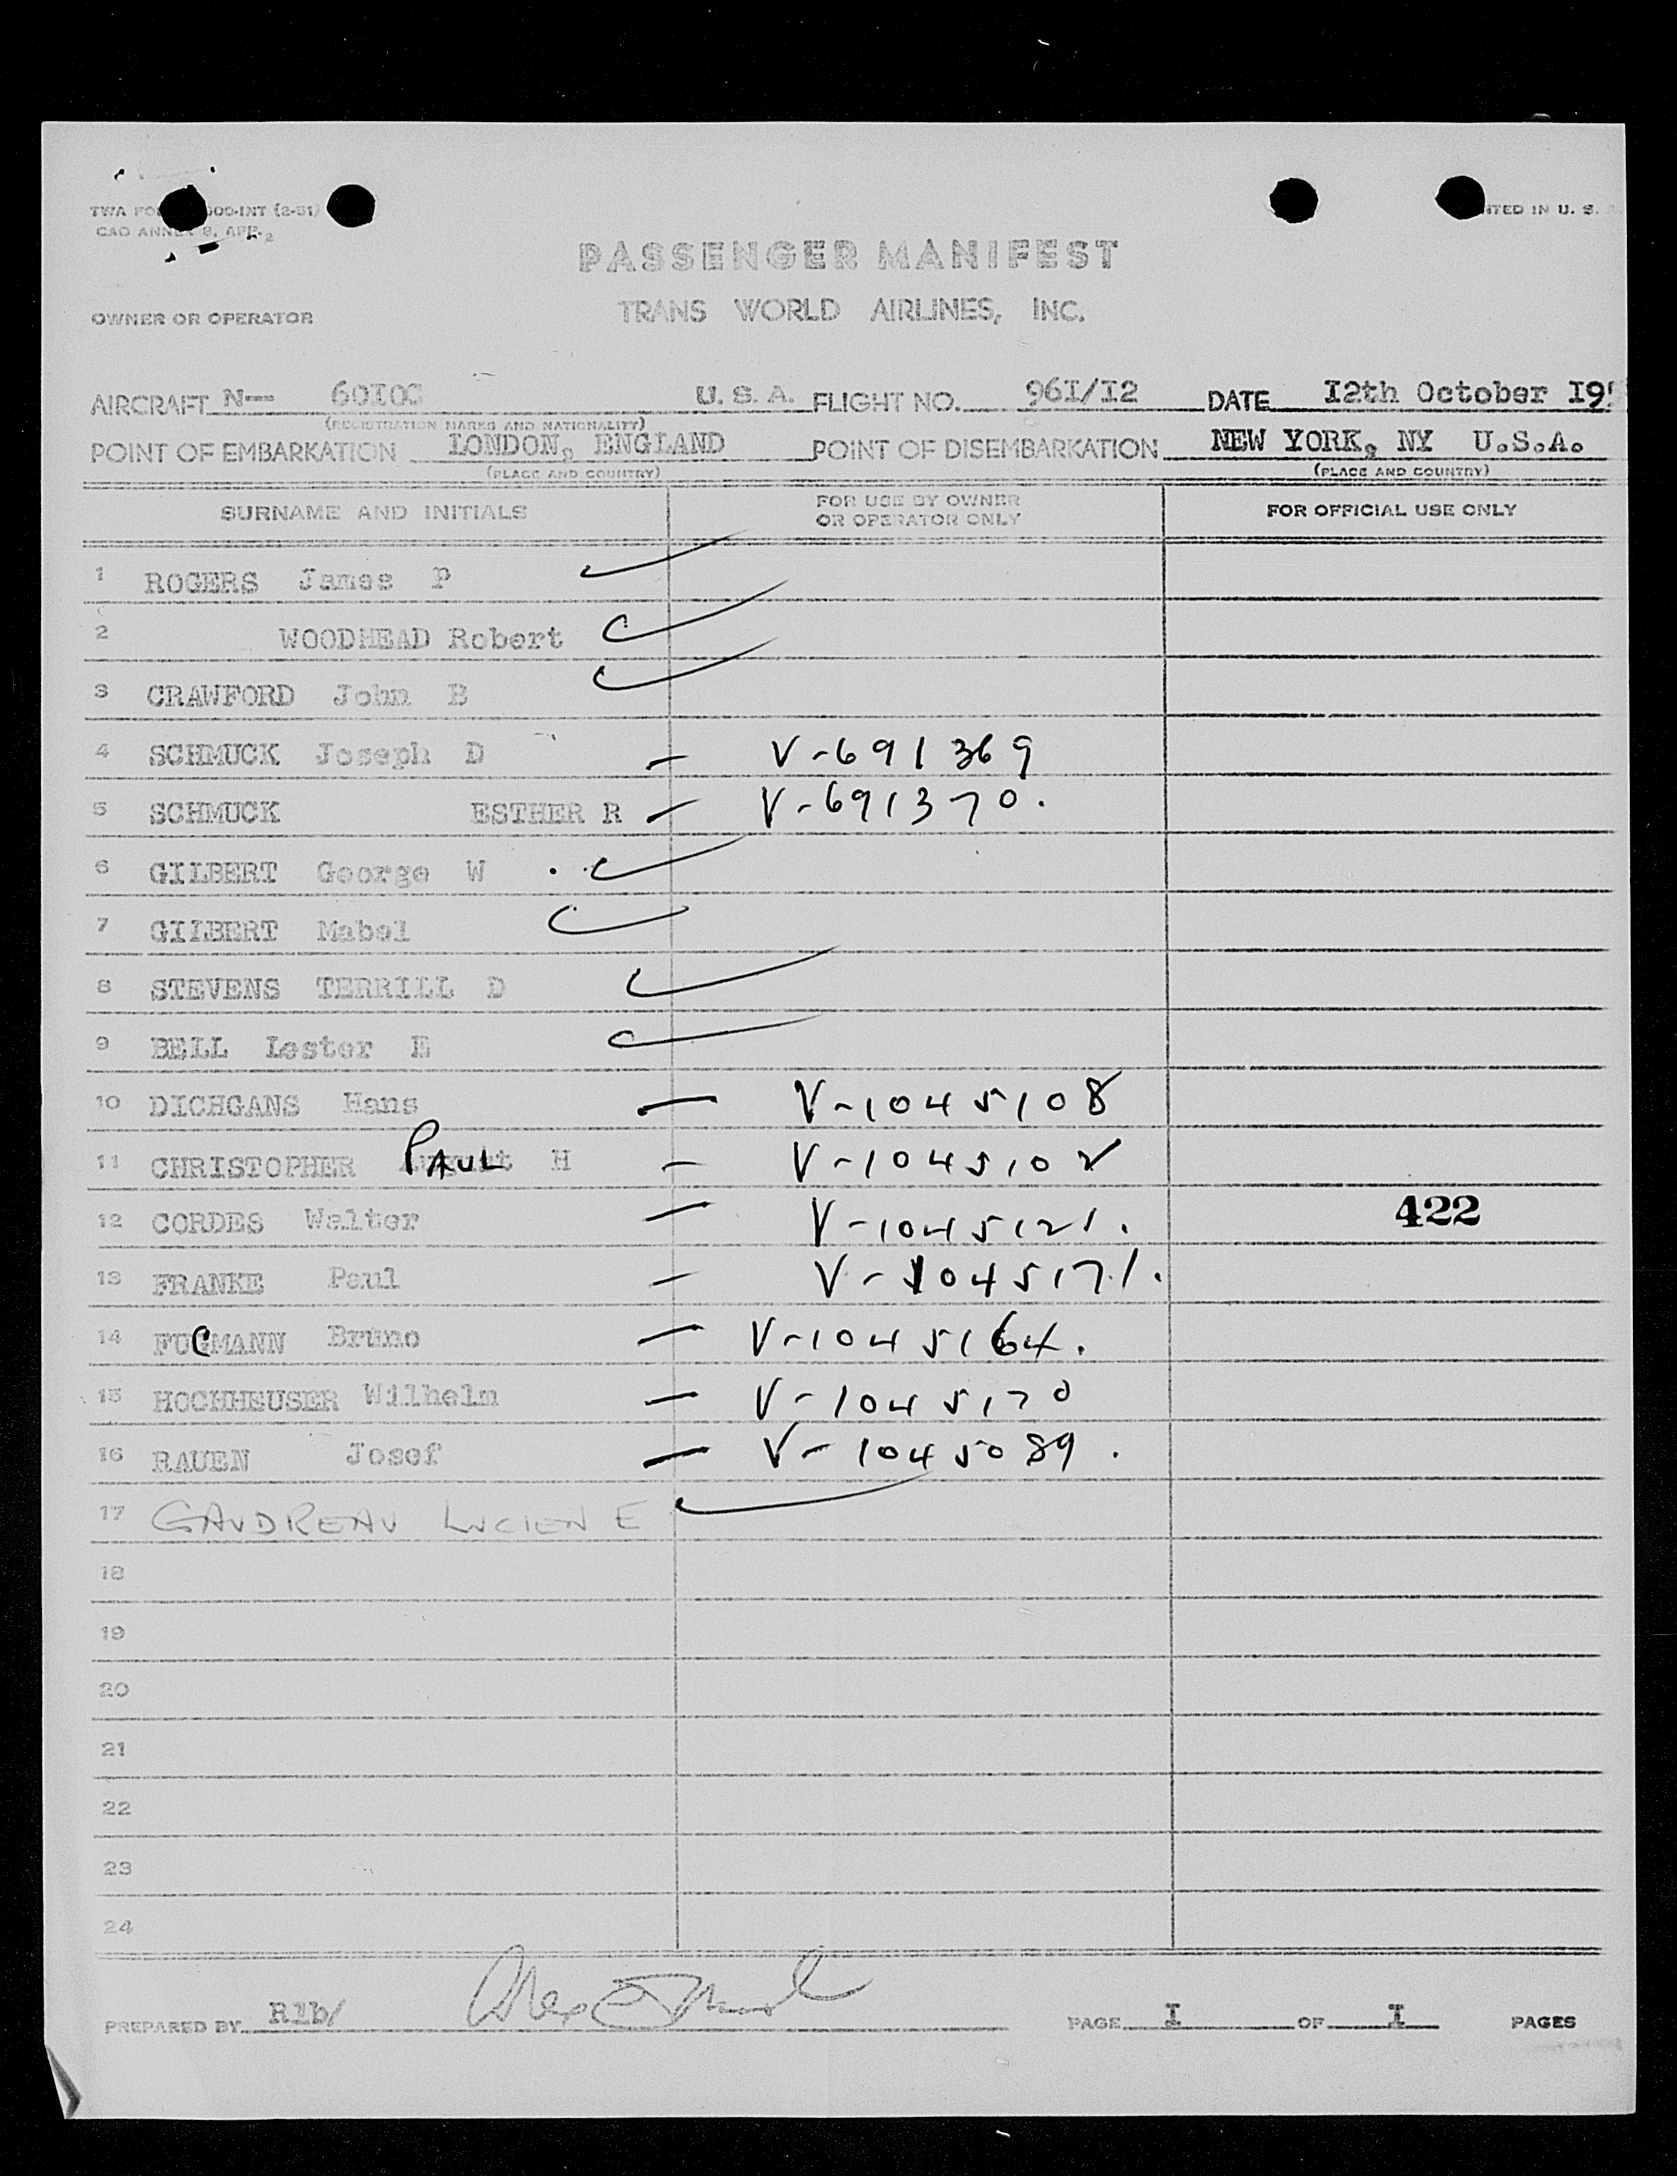 TWA FO 600-INT (2-51)
ITED IN U. S.
CAO ANNEX 9, APP. 2
PASSENGER MANIFEST
TRANS WORLD AIRLINES, INC.
OWNER OR OPERATOR
AIRCRAFT N-- 6010C U. S. A. FLIGHT NO. 961/12 DATE 12th October 195
(REGISTRATION MARKS AND NATIONALITY)
POINT OF EMBARKATION LONDON, ENGLAND POINT OF DISEMBARKATION NEW YORK, NY U.S.A.
(PLACE AND COUNTRY) (PLACE AND COUNTRY)
SURNAME AND INITIALS FOR USE BY OWNER OR OPERATOR ONLY FOR OFFICIAL USE ONLY
1 ROGERS James P
2 WOODHEAD Robert
3 CRAWFORD John B
4 SCHMUCK Joseph D - V-691369
5 SCHMUCK ESTHER R - V-691370.
6 GILBERT George W
7 GILBERT Mabel
8 STEVENS TERRILL D
9 BELL Lester E
10 DICHGANS Hans - V-1045108
11 CHRISTOPHER PAUL H - V-1045102
12 CORDES Walter - V-1045121. 422
13 FRANKE Paul - V-1045171.
14 FUGMANN Bruno - V-1045164.
15 HOCHHEUSER Wilhelm - V-1045170
16 RAUEN Josef - V-1045089.
17 GAUDREAU LUCIEN E
18
19
20
21
22
23
24
PREPARED BY Rlb/ PAGE I OF I PAGES